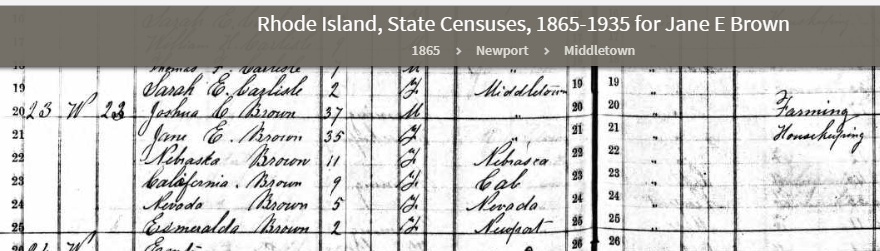 Rhode Island, State Censuses, 1865-1935 for Jane E Brown
1865 > Newport > Middletown
Thomas F. Carlisle 1 M "
19 Sarah E. Carlisle 2 F Middletown 19 19 "
20 23 W 23 Joshua C Brown 37 M " 20 20 " Farming
21 Jane E. Brown 35 F " 21 21 " Housekeeping
22 Nebraska Brown 11 F Nebrasca 22 22 "
23 California. Brown 9 F Cal 23 23 "
24 Nevada Brown 5 F Nevada 24 24 "
25 Esmeralda Brown 2 F Newport 25 25 "
26 W 26 26